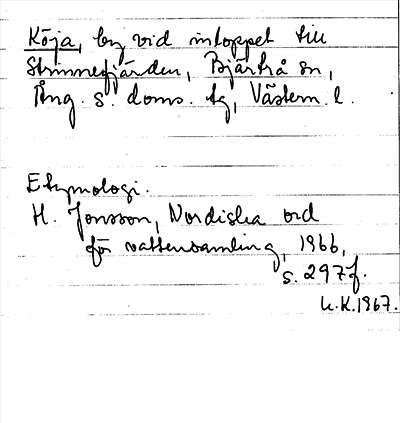 Köja, by vid inloppet till
Strinnefjärden, Bjärtrå sn,
Ång. s. doms. tg, Västern. l.
Etymologi.
H. Jonsson, Nordiska ord
för vattensamling, 1966,
s. 297f.
U.K. 1967.